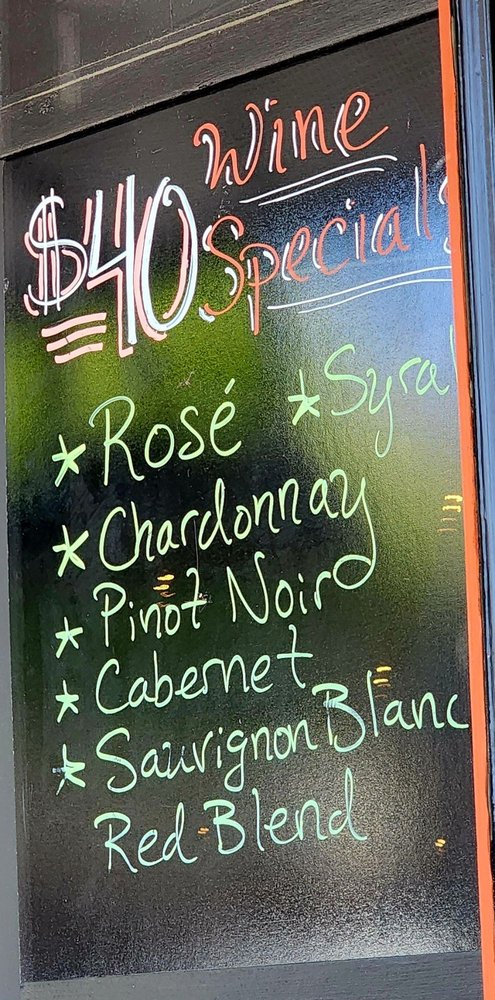 $40 Wine
Specials
* Rosé * Syra
* Chardonnay
* Pinot Noir
* Cabernet
* Sauvignon Blanc
Red Blend